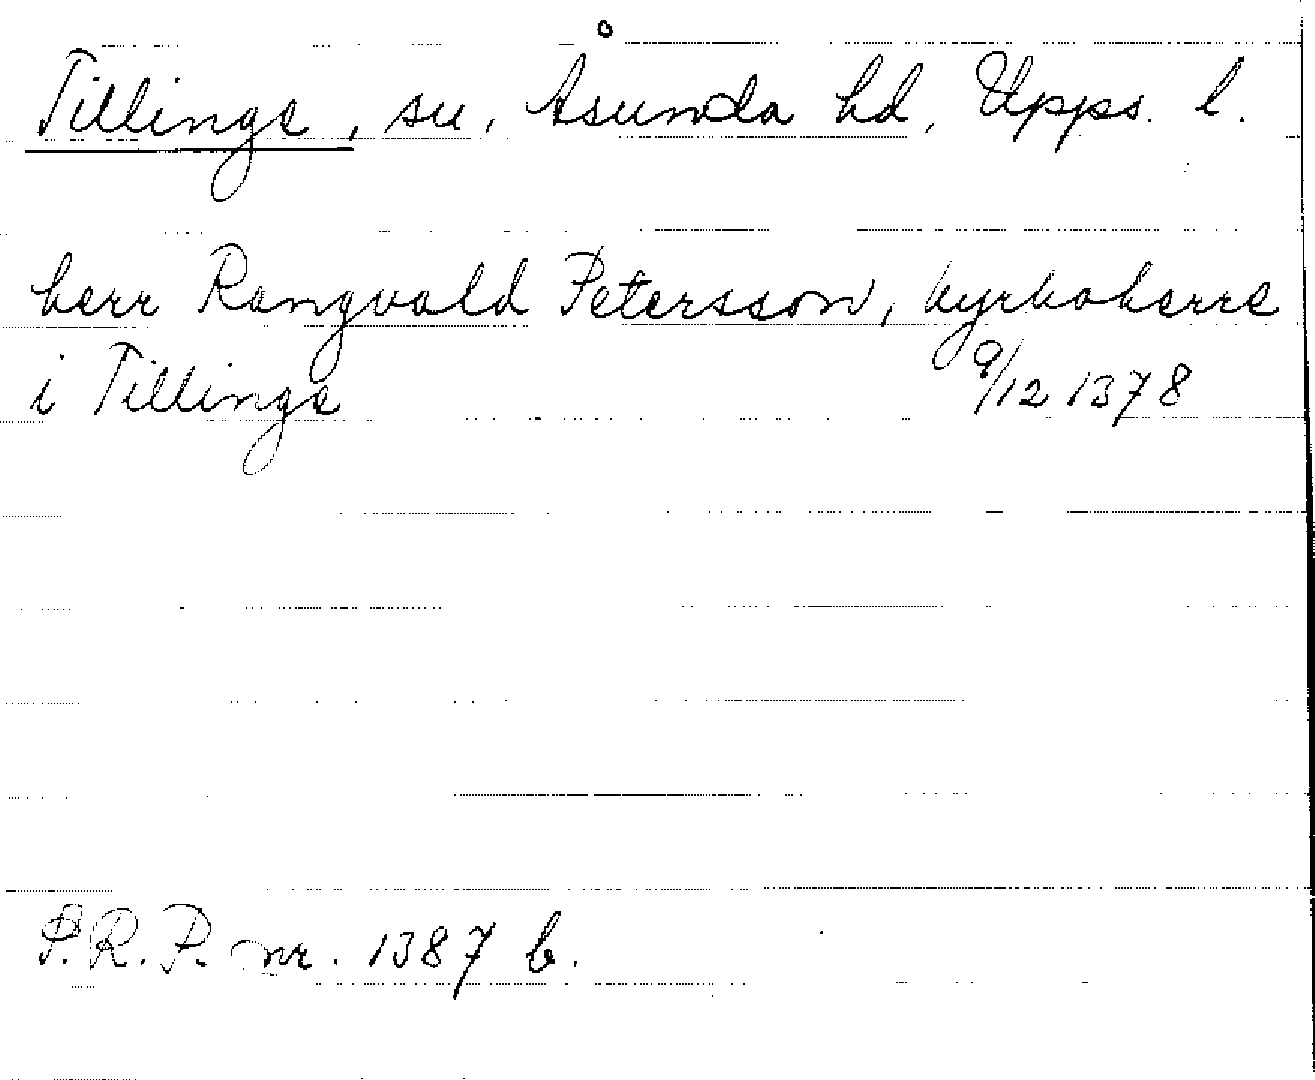 Tillinge, sn, Åsunda hd, Upps. l.
herr Rangvald Petersson, kyrkoherre
i Tillinge 9/12 1378
P.R.P. nr. 1387 b.